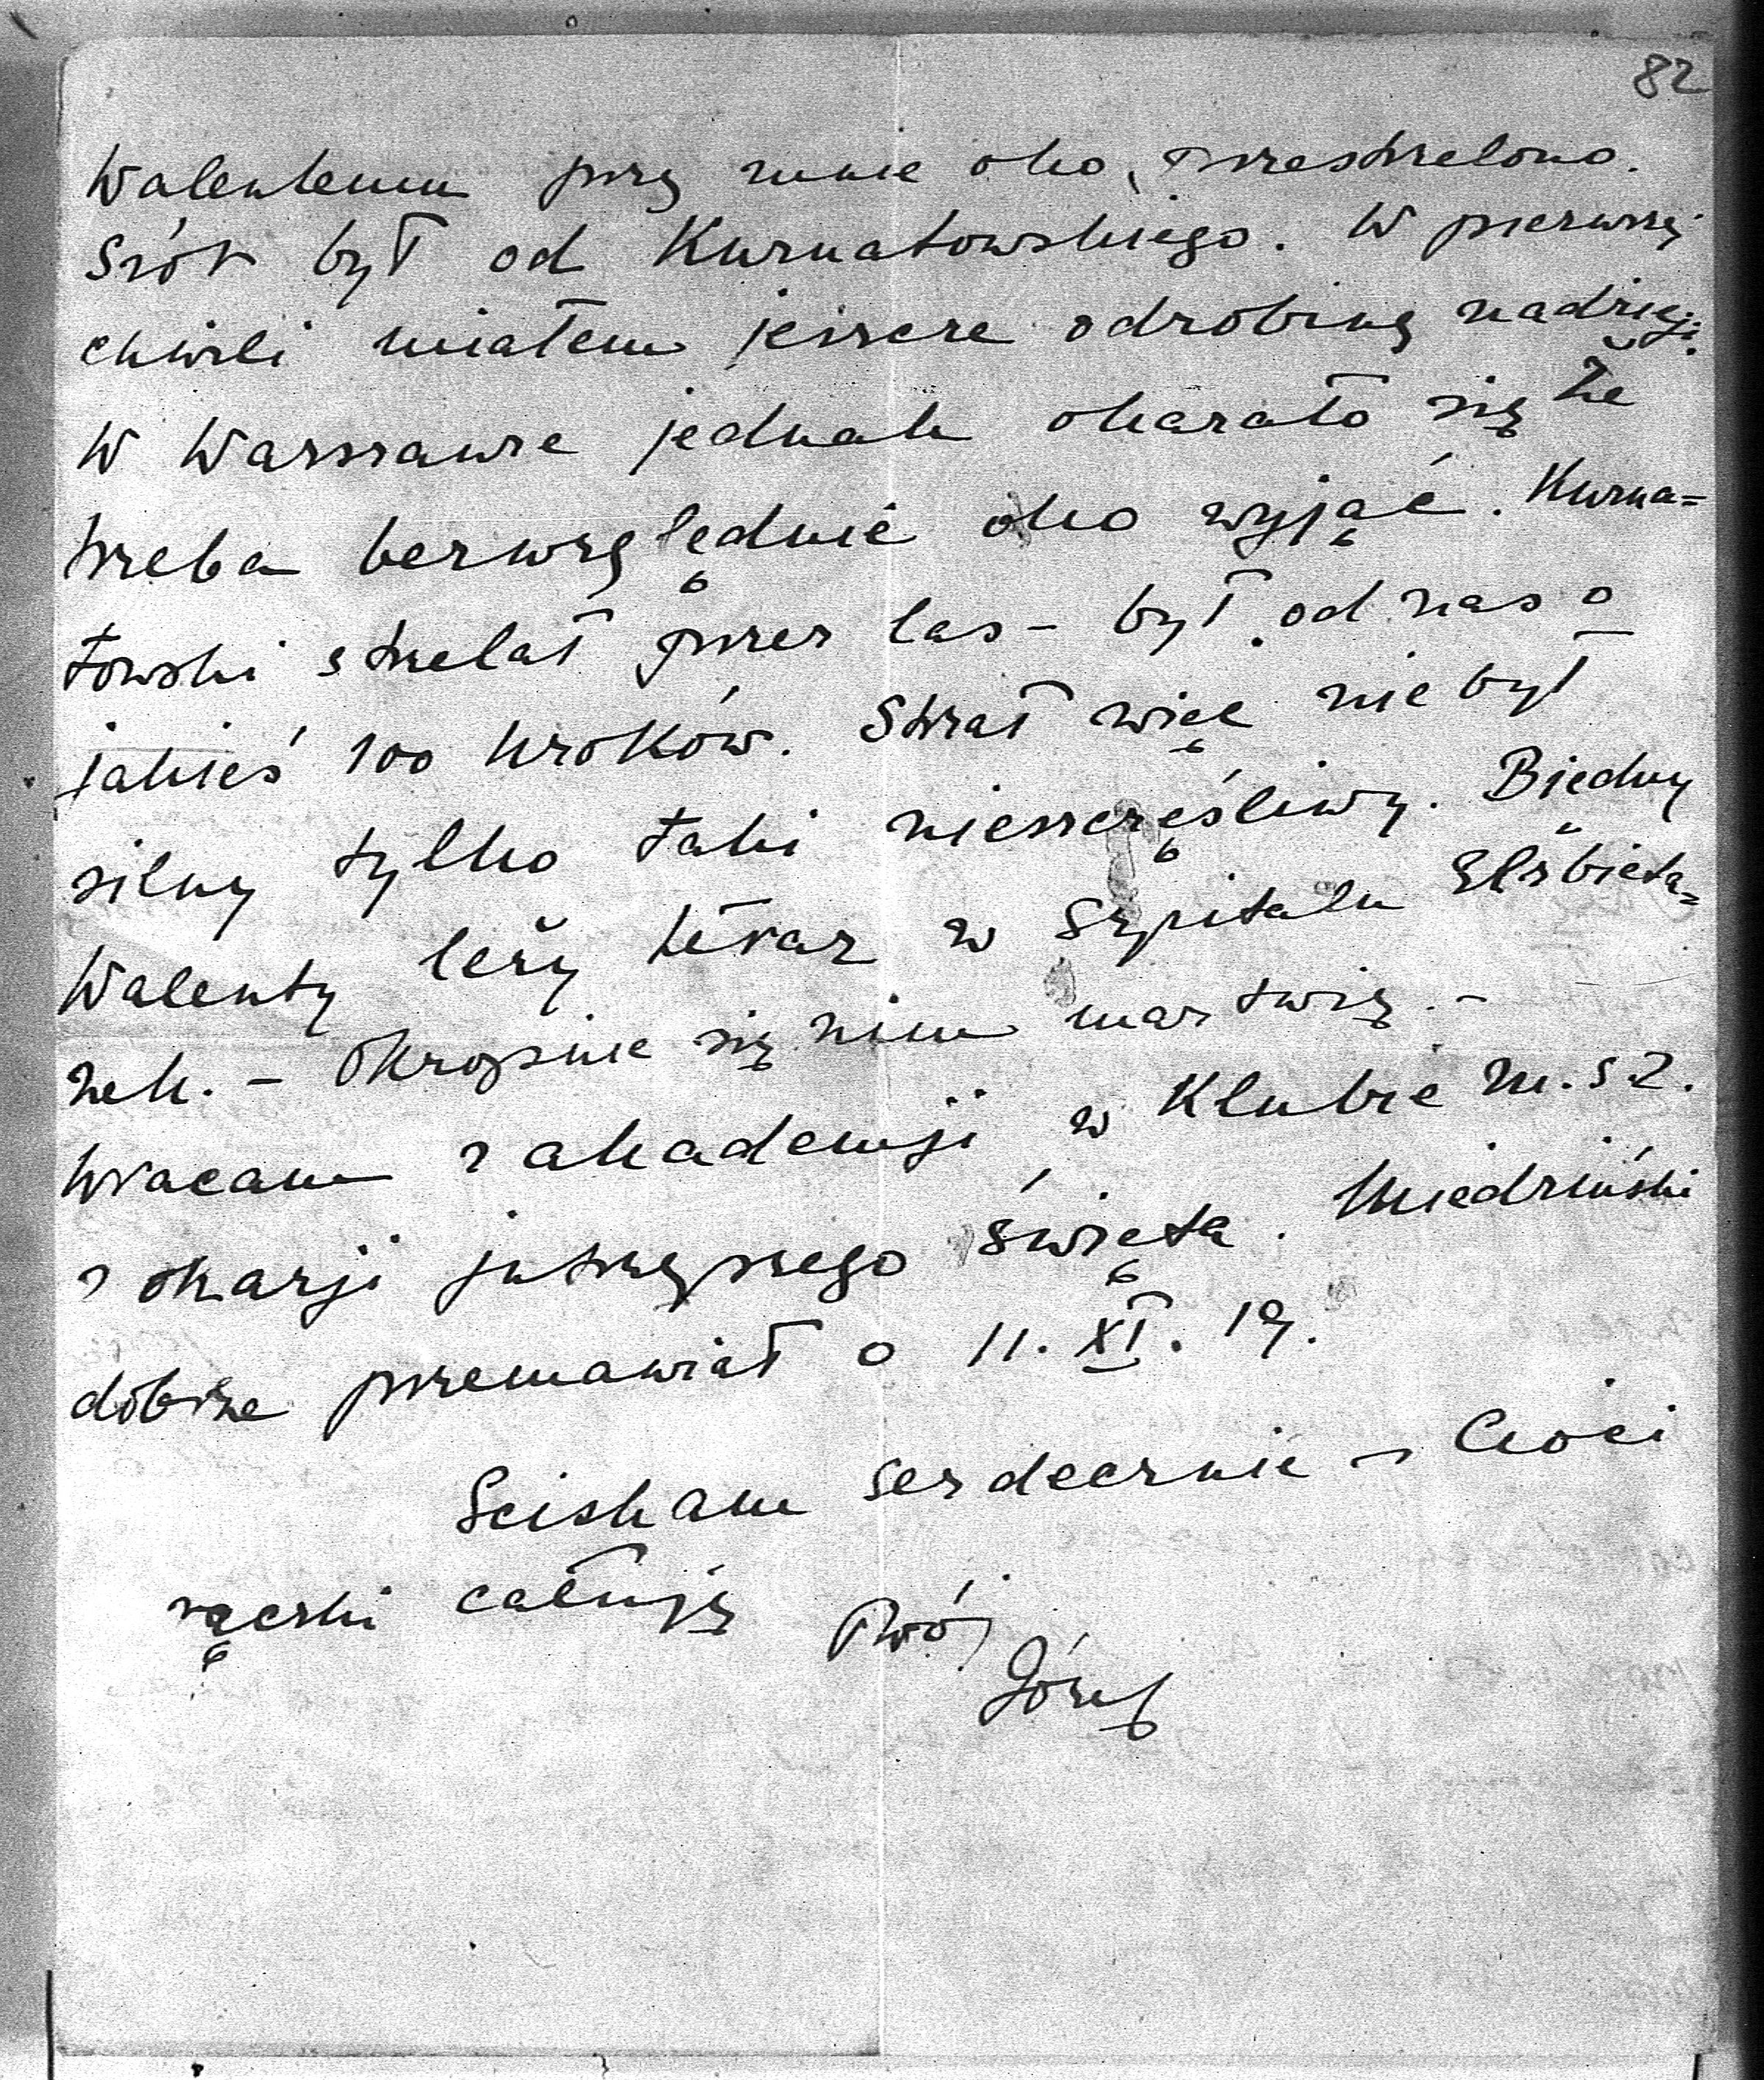 82
Walentemu przy mnie oko przestrzelono.
Śrót był od Kurnatowskiego. W pierwszej
chwili miałem jeszcze odrobinę nadzieji.
W Warszawie jednak okazało się że
trzeba bezwzględnie oko wyjąć. Kurna=
towski strzelał przez las – był od nas o
jakieś 100 kroków. Strzał więc nie był
silny tylko taki nieszczęśliwy. Biedny
Walenty leży teraz w szpitalu Elżbieta=
nek. – Okropnie się nim martwię. –
Wracam z akademji w Klubie M.S.Z.
z okazji jutrzejszego święta. Miedziński
dobrze przemawiał o 11. XI. 19.
Sciskam serdecznie – Cioci
rączki całuję Twój
Józef